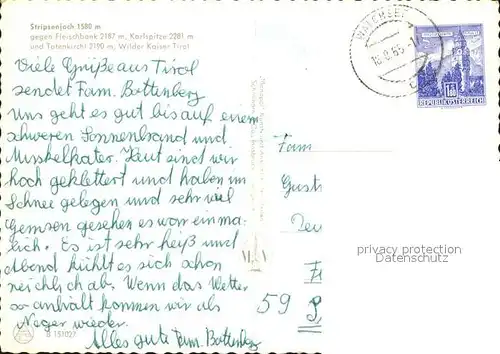 Stripsenjoch 1580 m
gegen Fleischbank 2187 m, Karlspitze 2281 m
und Totenkirchl 2190 m, Wilder Kaiser Tirol
Viele Grüße aus Tirol
sendet Fam. Bottenberg
Uns geht es gut bis auf einem
schweren Sonnenbrand und
Muskelkater. Heut sind wir
hoch geklettert und haben im
Schnee gelegen und sehr viel
Gemsen gesehen es war einma-
lich. Es ist sehr heiß und
Abend kühlt es sich schon
reichlich ab. Wenn das Wetter
so anhält kommen wir als
Neger wieder.
Alles gute Fam. Bottenberg
B 151027
WALCHSEE
REPUBLIK ÖSTERREICH
Fam
59
privacy protection
Datenschutz